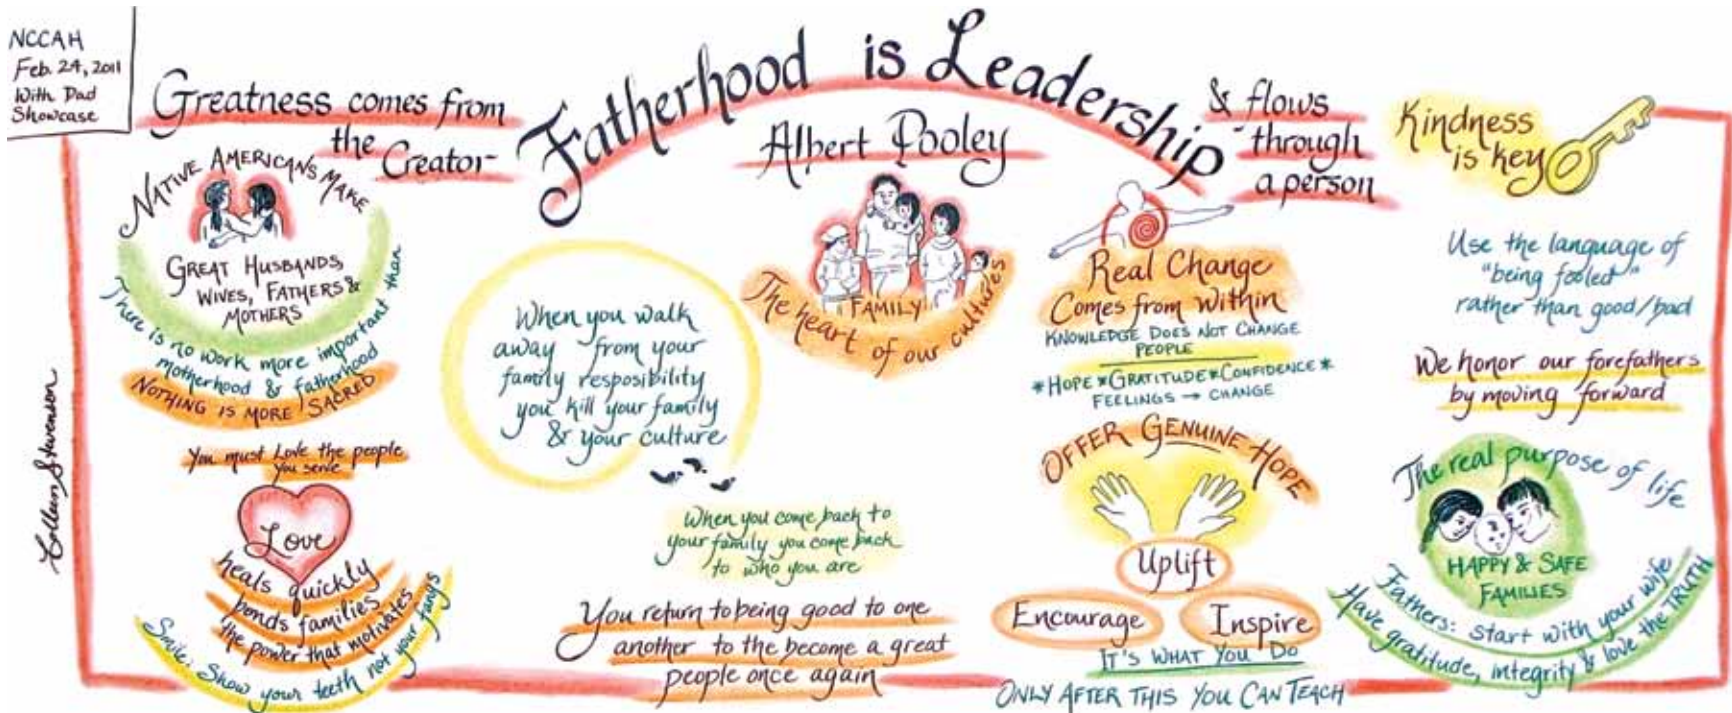 NCCAH
Feb. 24, 2011
With Dad
Showcase
Fatherhood is Leadership
Albert Pooley
Greatness comes from
the Creator
& flows
through
a person
Kindness
is key
NATIVE AMERICANS MAKE
GREAT HUSBANDS,
WIVES, FATHERS &
MOTHERS
There is no work more important than
motherhood & fatherhood
NOTHING IS MORE SACRED
You must Love the people
you serve
Love
heals quickly
bonds families
the power that motivates
Smile: Show your teeth not your fangs
When you walk
away from your
family resposibility
you kill your family
& your culture
When you come back to
your family you come back
to who you are
You return to being good to one
another to the become a great
people once again
FAMILY
The heart of our cultures
Real Change
Comes from Within
KNOWLEDGE DOES NOT CHANGE
PEOPLE
*HOPE*GRATITUDE*CONFIDENCE*
FEELINGS → CHANGE
OFFER GENUINE HOPE
Uplift
Encourage
Inspire
IT'S WHAT YOU DO
ONLY AFTER THIS YOU CAN TEACH
Use the language of
"being fooled"
rather than good/bad
We honor our forefathers
by moving forward
The real purpose of life
HAPPY & SAFE
FAMILIES
Fathers: start with your wife
Have gratitude, integrity & love the TRUTH
Colleen Stevenson